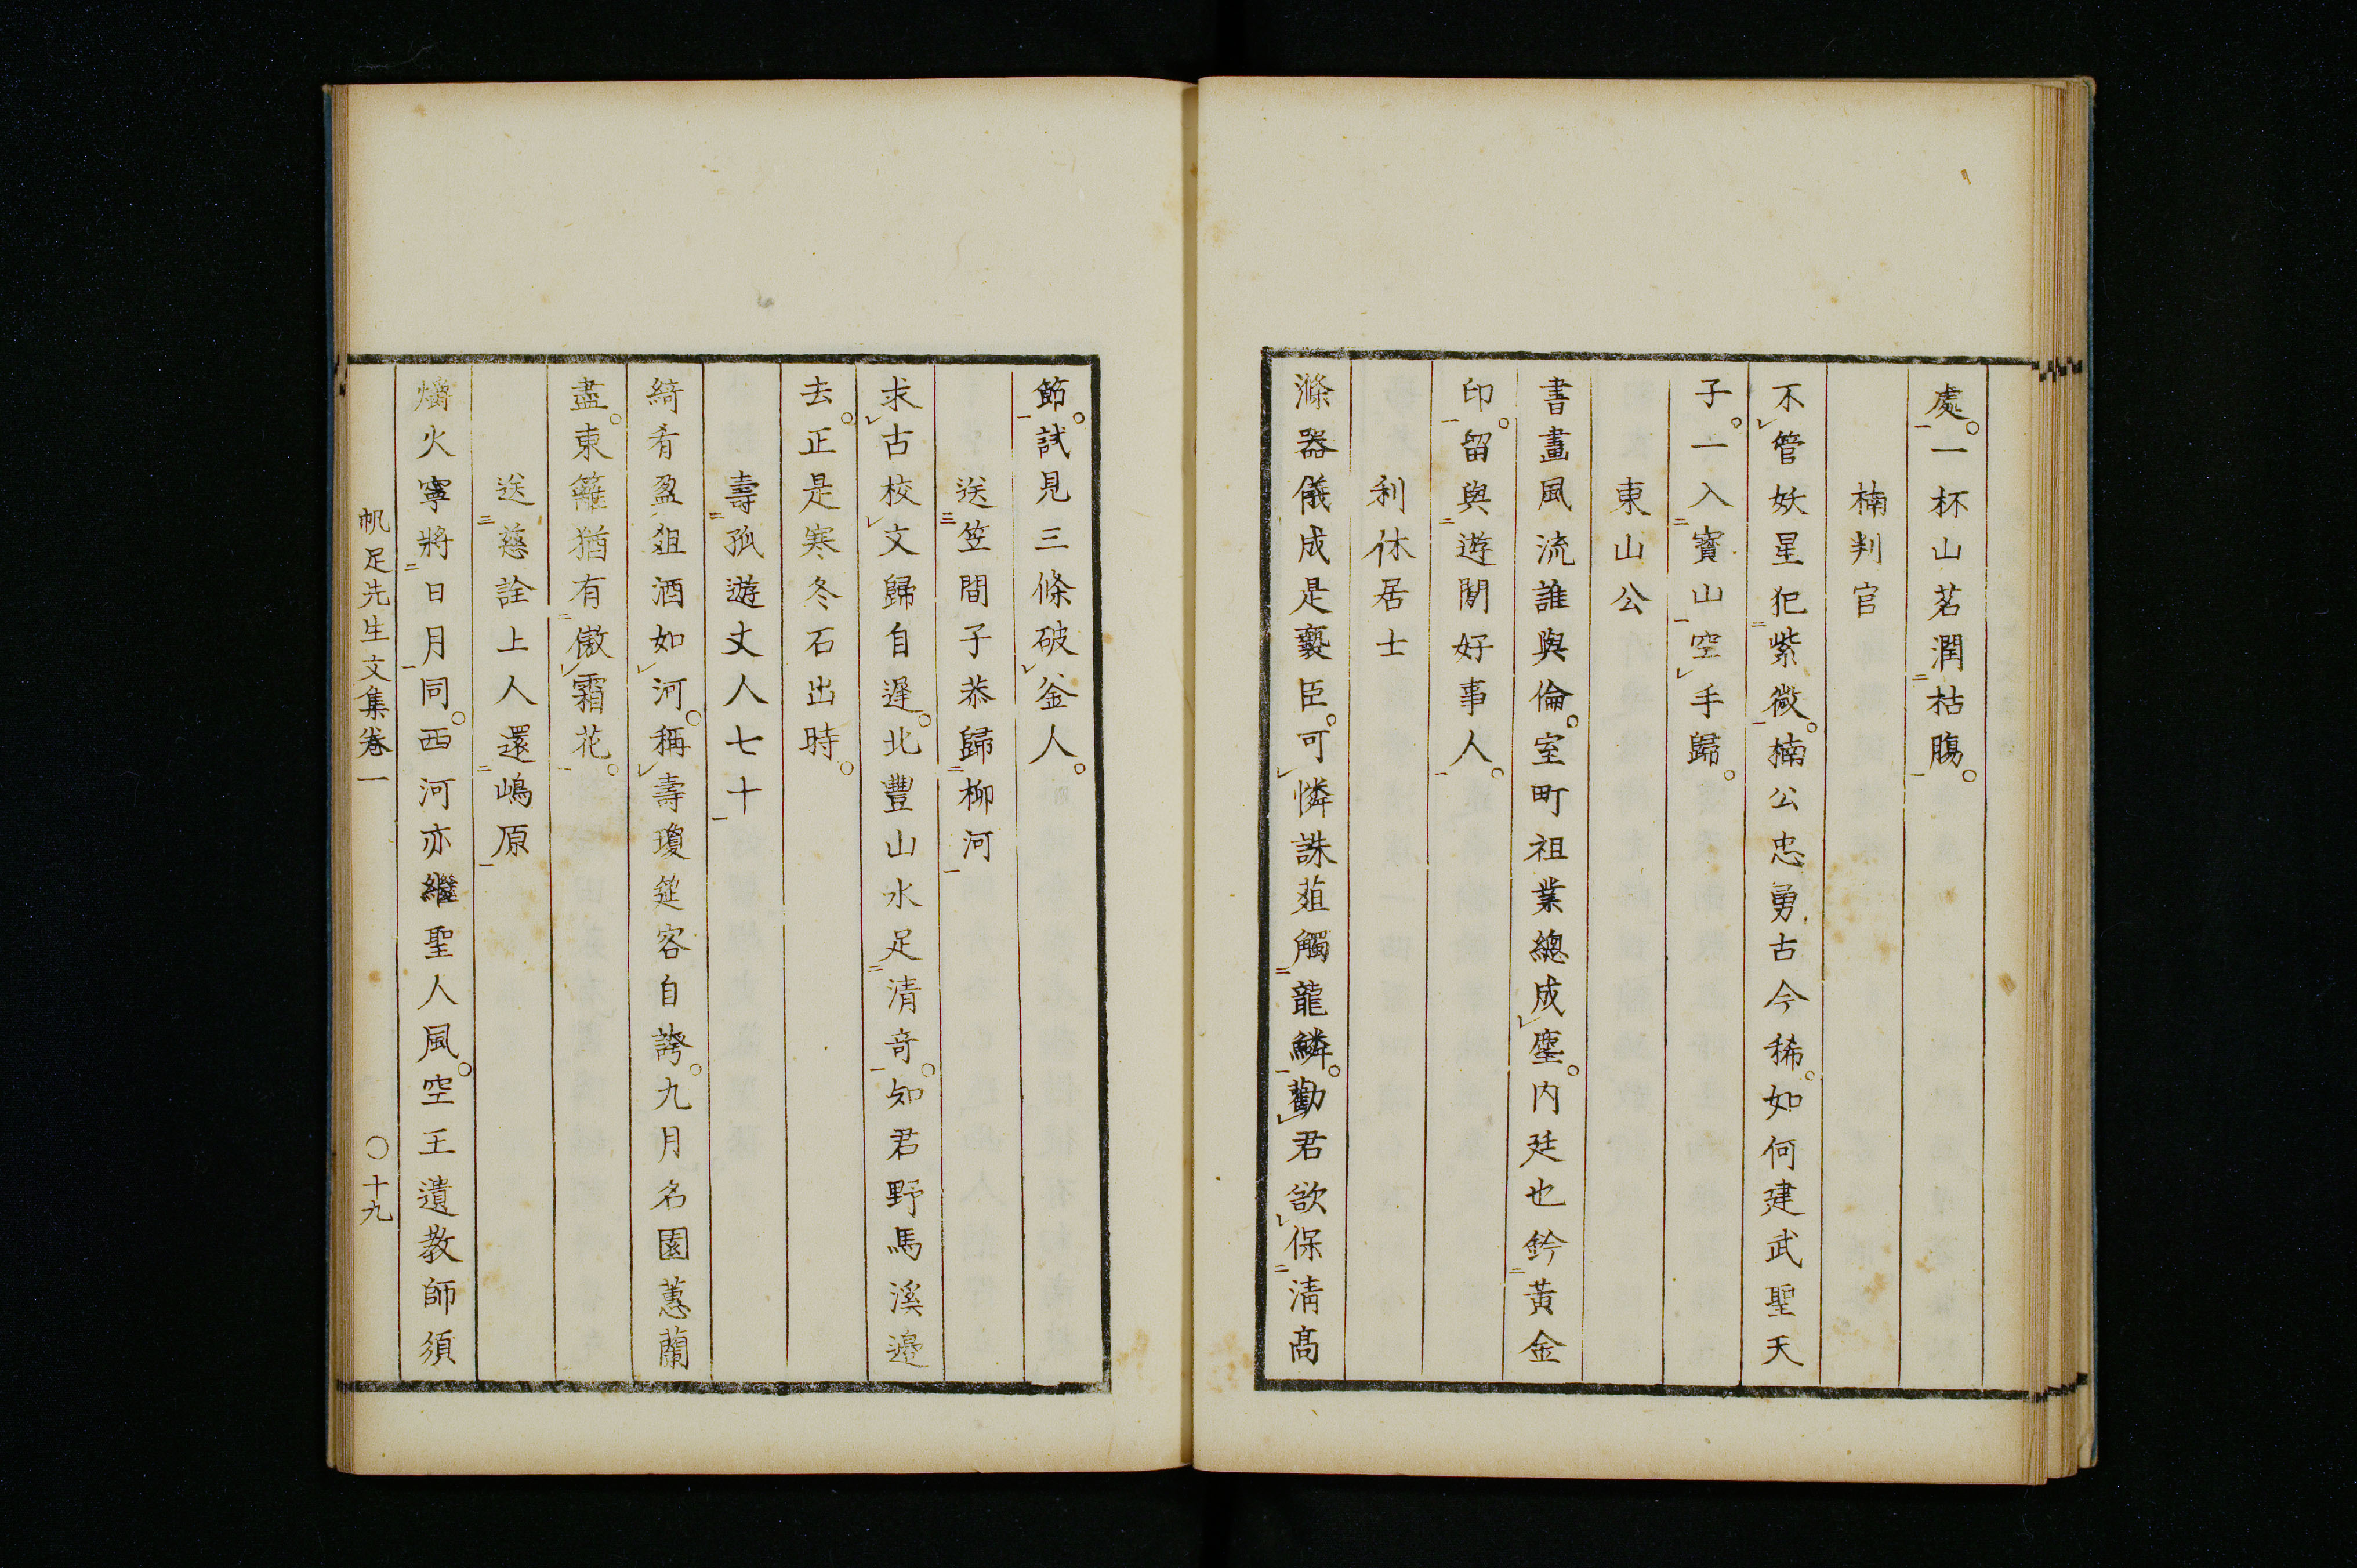 處。一杯山茗潤枯膓。
楠判官
不管妖星犯紫微。楠公忠勇古今稀。如何建武聖天
子。一入寶山空手歸。
東山公
書畫風流誰與倫。室町祖業總成塵。内廷也鈐黃金
印。留與遊閒好事人。
利休居士
滌器儀成是褻臣。可憐誅葅觸龍鱗。勸君欲保清高
節。試見三條破釜人。
送笠間子恭歸柳河
求古校文歸自遲。北豐山水足清奇。知君野馬溪邉
去。正是寒冬石出時。
壽孤遊丈人七十
綺肴盈俎酒如河。稱壽瓊筵客自誇。九月名園蕙蘭
盡。東籬猶有傲霜花。
送慈詮上人還嶋原
爝火寧將日月同。西河亦繼聖人風。空王遺教師須
帆足先生文集卷一
〇十九